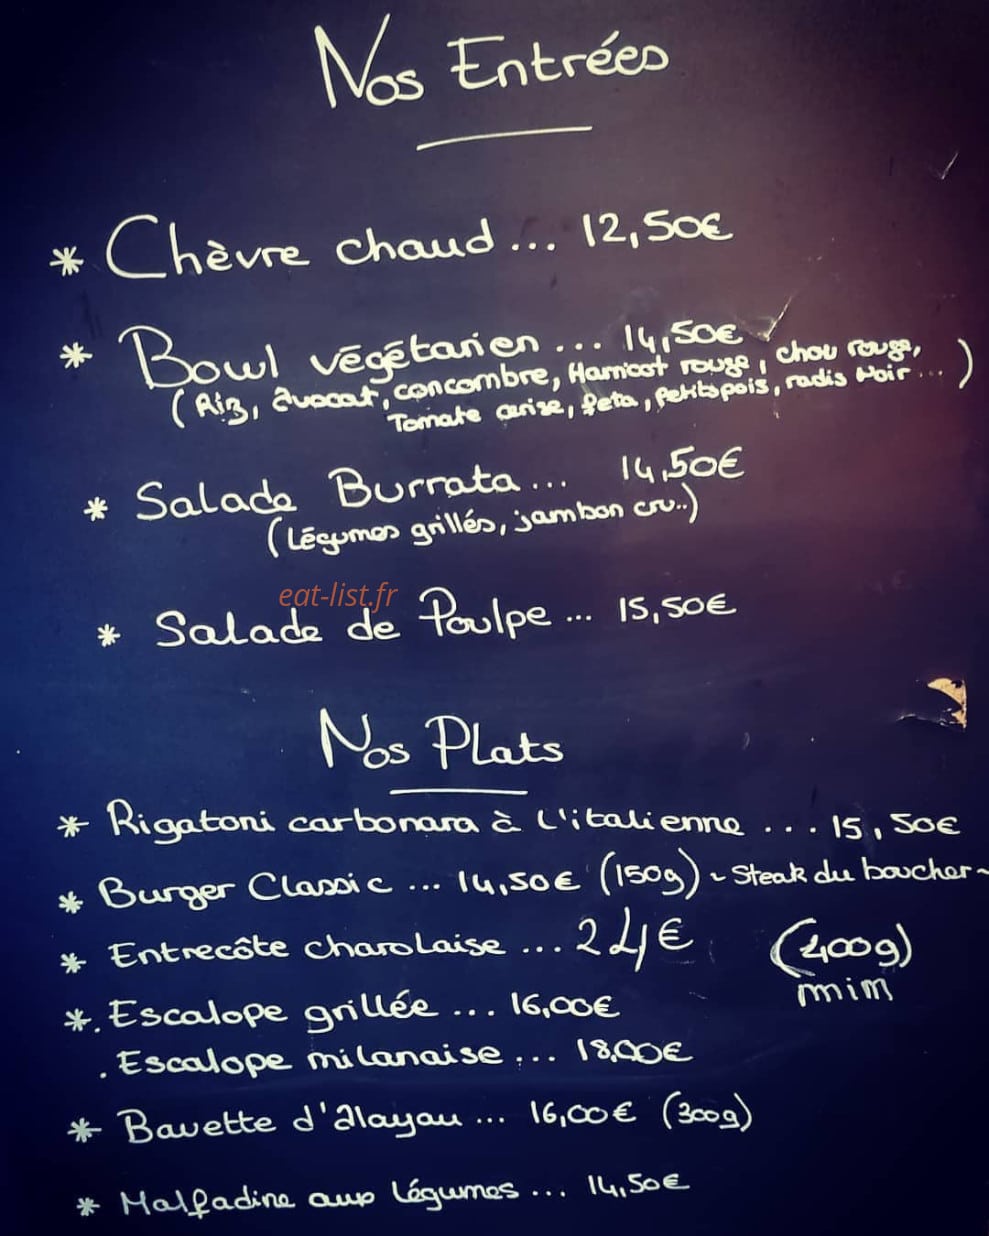 Nos Entrées
* Chèvre chaud ... 12,50€
* Bowl végétarien ... 14,50€
(Riz, Avocat, concombre, Harricot rouge, chou rouge,
Tomate cerise, feta, petits pois, radis Noir ... )
* Salade Burrata ... 14,50€
(Légumes grillés, jambon cru..)
eat-list.fr
* Salade de Poulpe ... 15,50€
Nos Plats
* Rigatoni carbonara à l'italienne ... 15,50€
* Burger Classic ... 14,50€ (150g) ~ Steak du boucher ~
* Entrecôte charolaise ... 24€ (400g)
mim
*. Escalope grillée ... 16,00€
. Escalope milanaise ... 18,00€
* Bavette d'Aloyau ... 16,00€ (300g)
* Malfadine aux légumes ... 14,50€